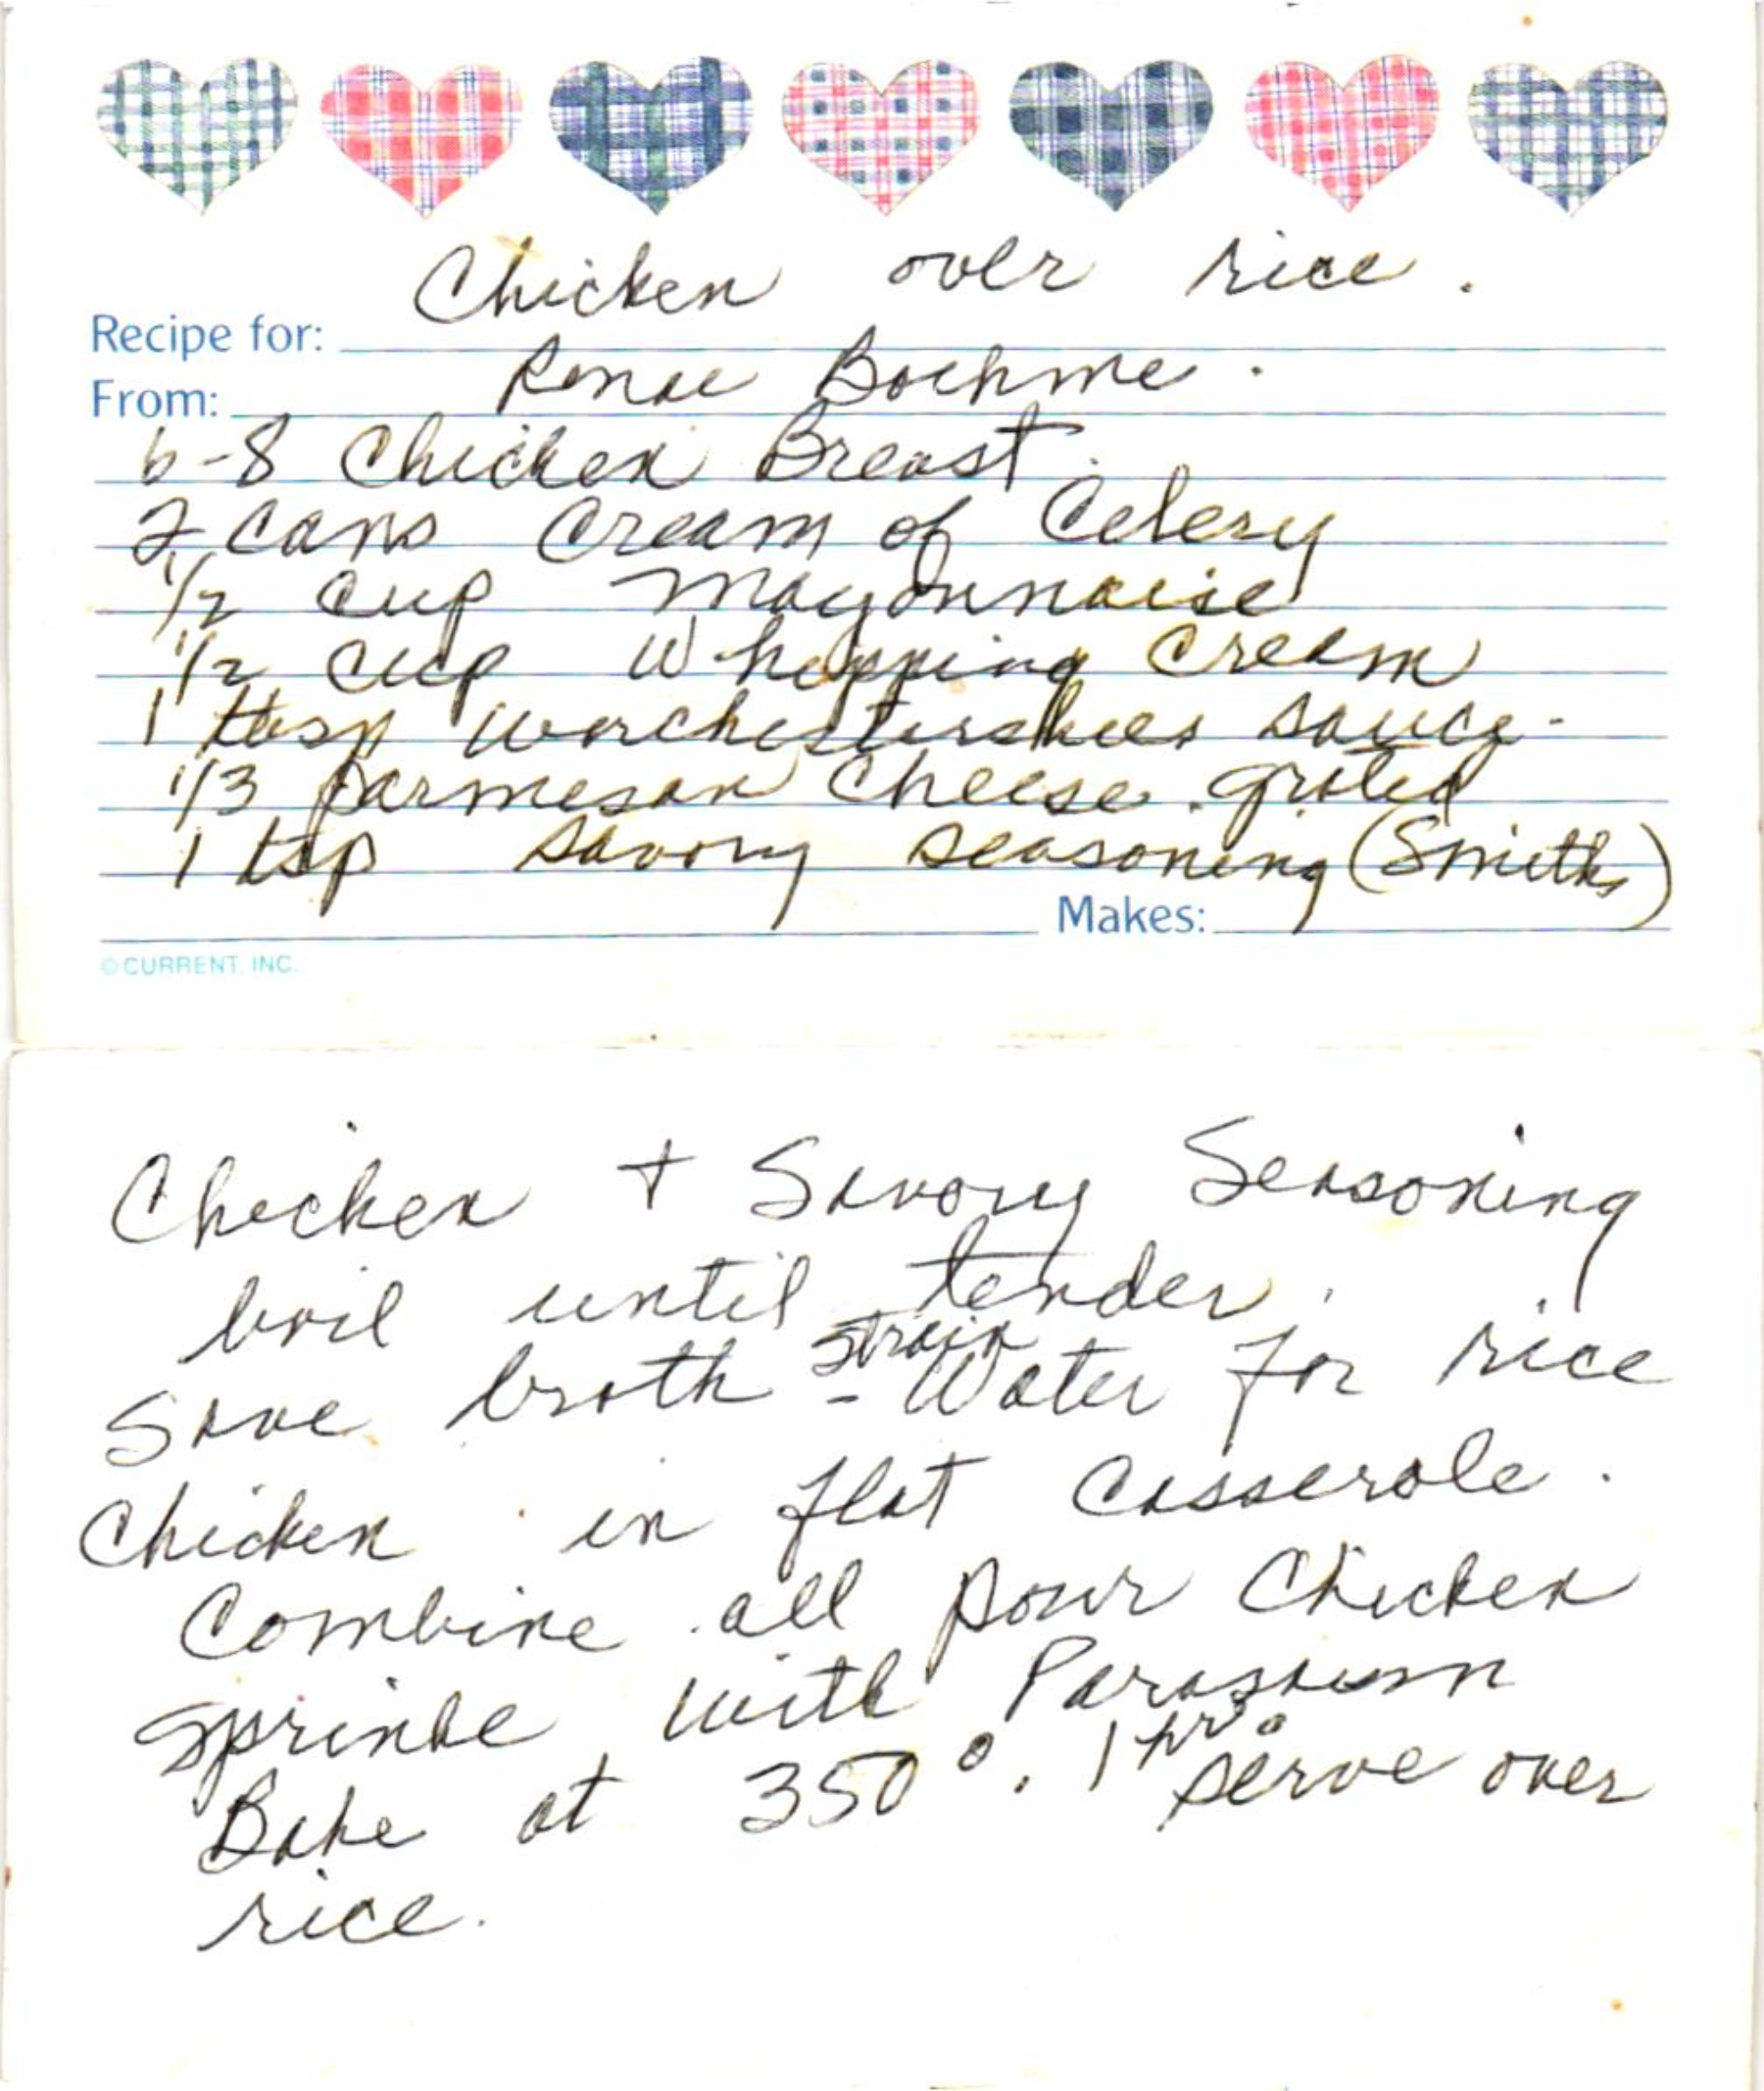 Chicken over rice.
Recipe for:
Renae Boehme.
From:
6-8 Chicken Breast.
2 cans Cream of Celery
1/2 cup Mayonnaise
1/2 cup Whipping Cream
1 tbsp Worchestershies sauce.
1/3 Parmesan Cheese grated
1 tsp Savory Seasoning (Smiths)
Makes:
© CURRENT, INC.
Chicken + Savory Seasoning
boil until tender.
strain
Save broth - Water for rice
Chicken in flat Casserole.
Combine all pour Chicken
Sprinke with
Bake at 350°. 1 hr. serve over
rice.